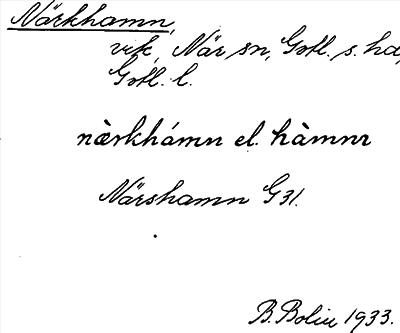 Närkhamn,
vik, När sn, Gotl. s. hd,
Gotl. l.
nàrkhámn el. hàmnr
Närshamn G31.
B. Bolin 1933.